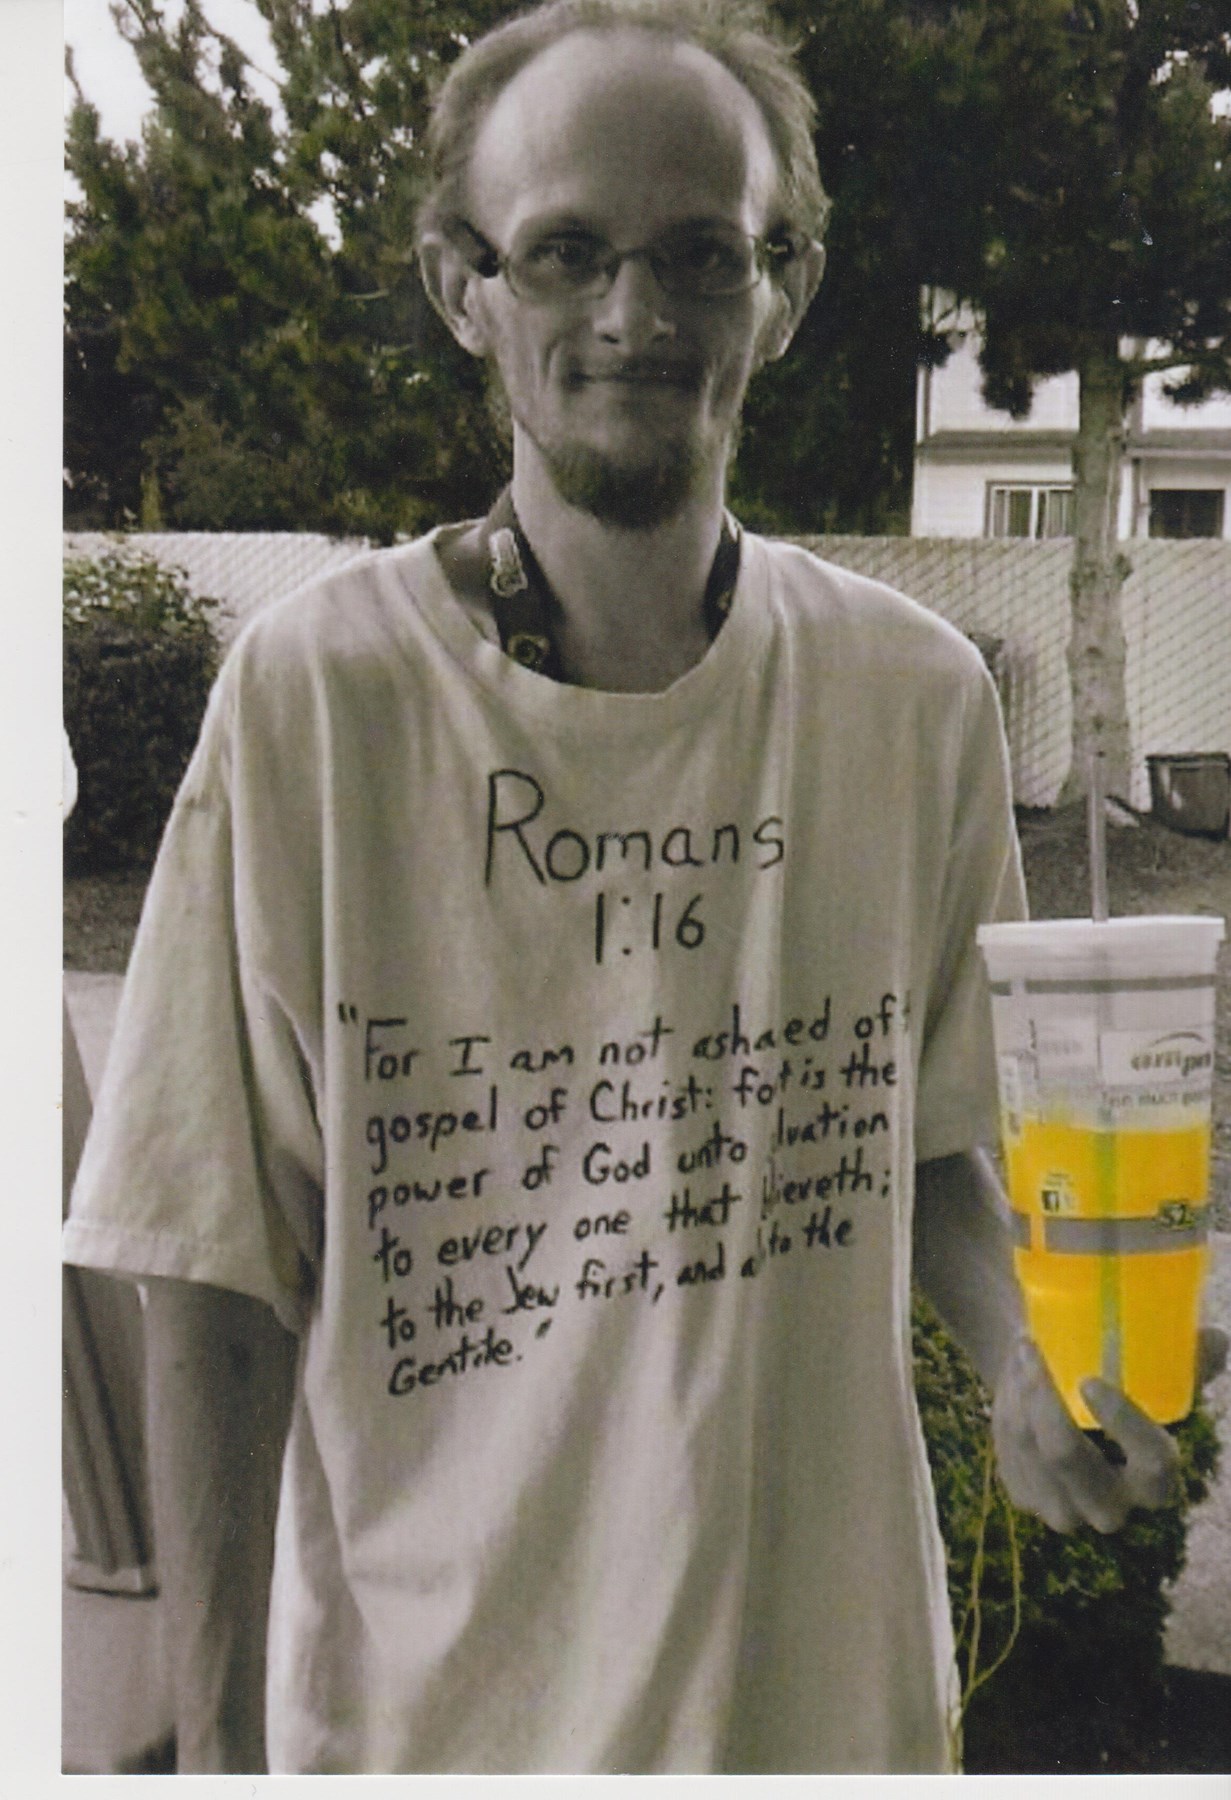 Romans
1:16
"For I am not ashaed of
gospel of Christ: fo t is the
power of God unto lvation
to every one that lieveth;
to the Jew first, and a to the
Gentile."
52